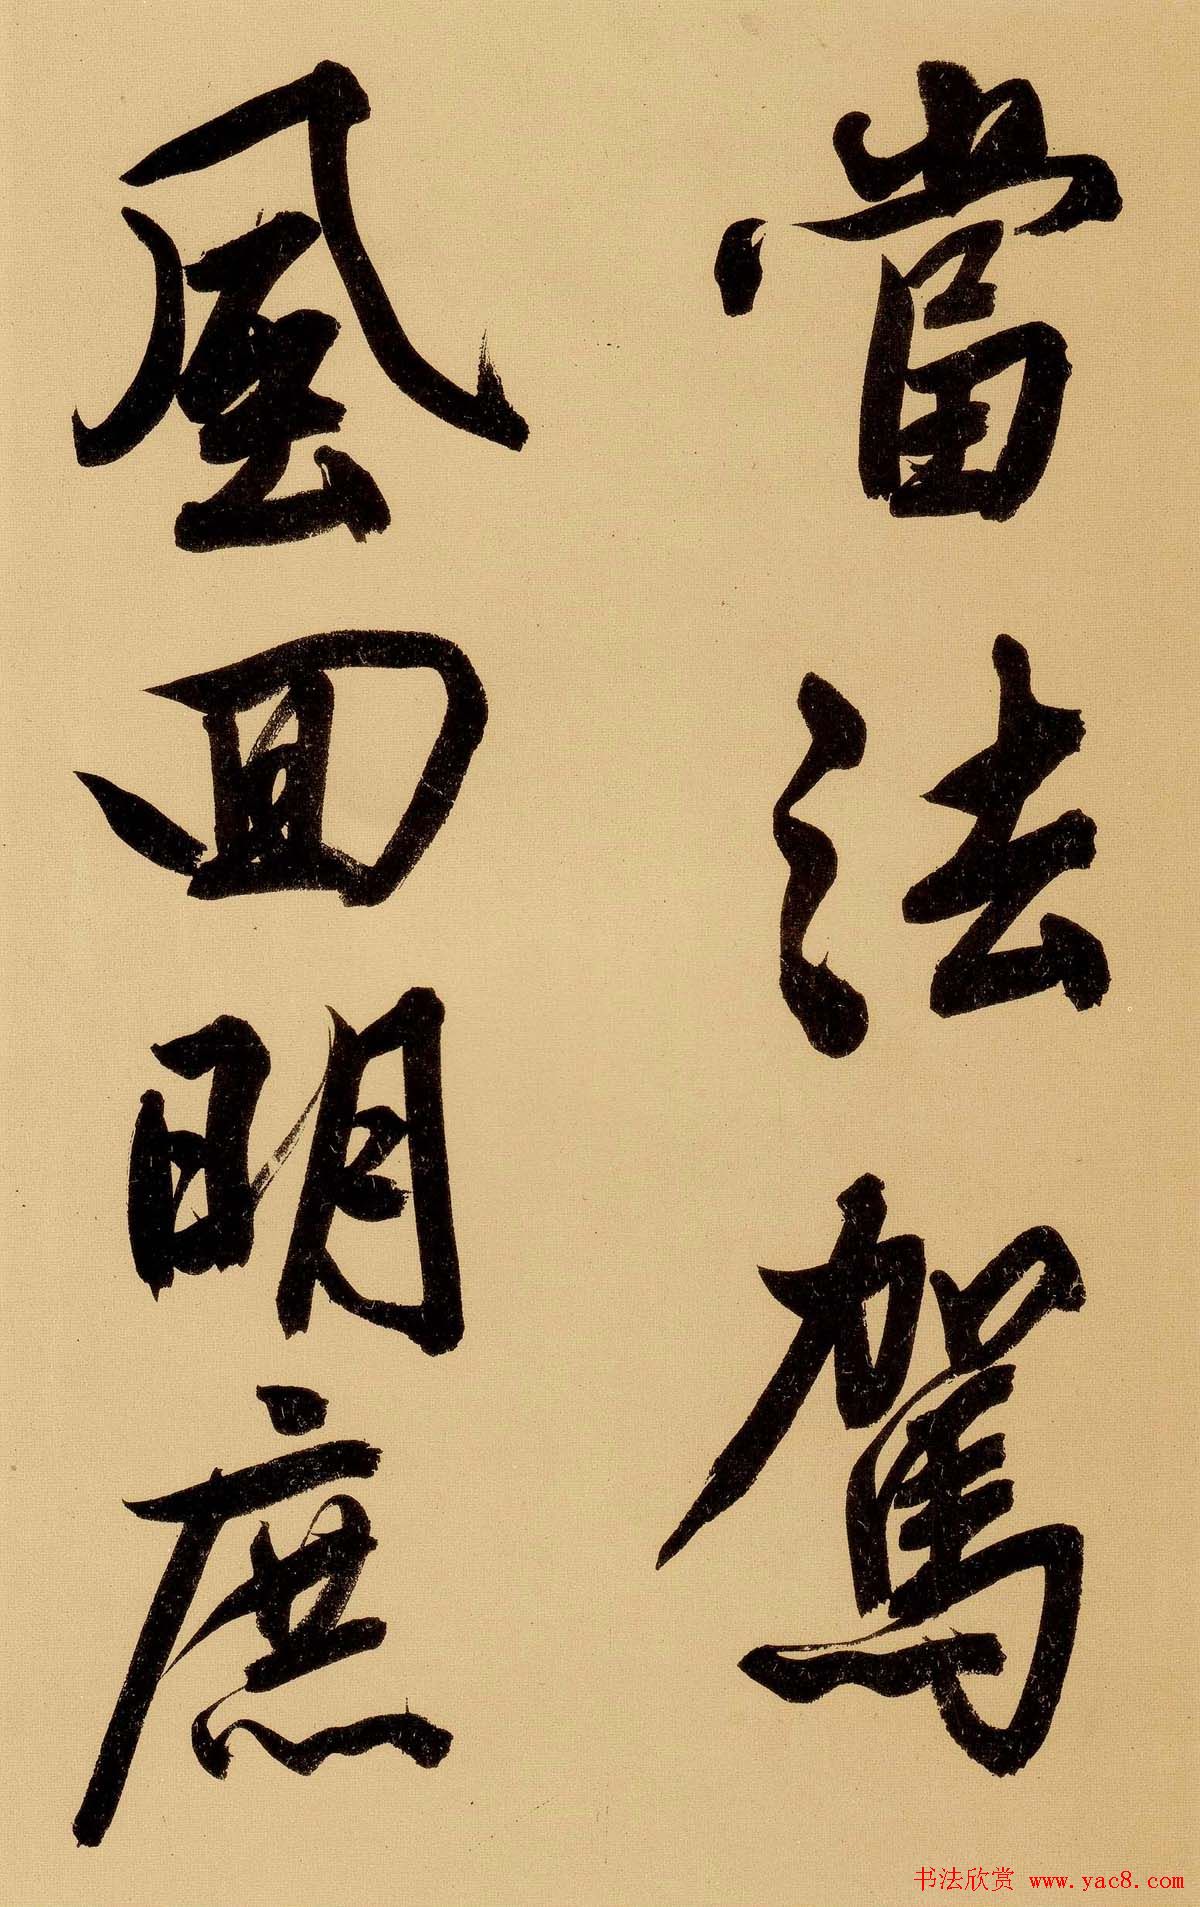 當法駕
風回明庶
书法欣赏 www.yac8.com